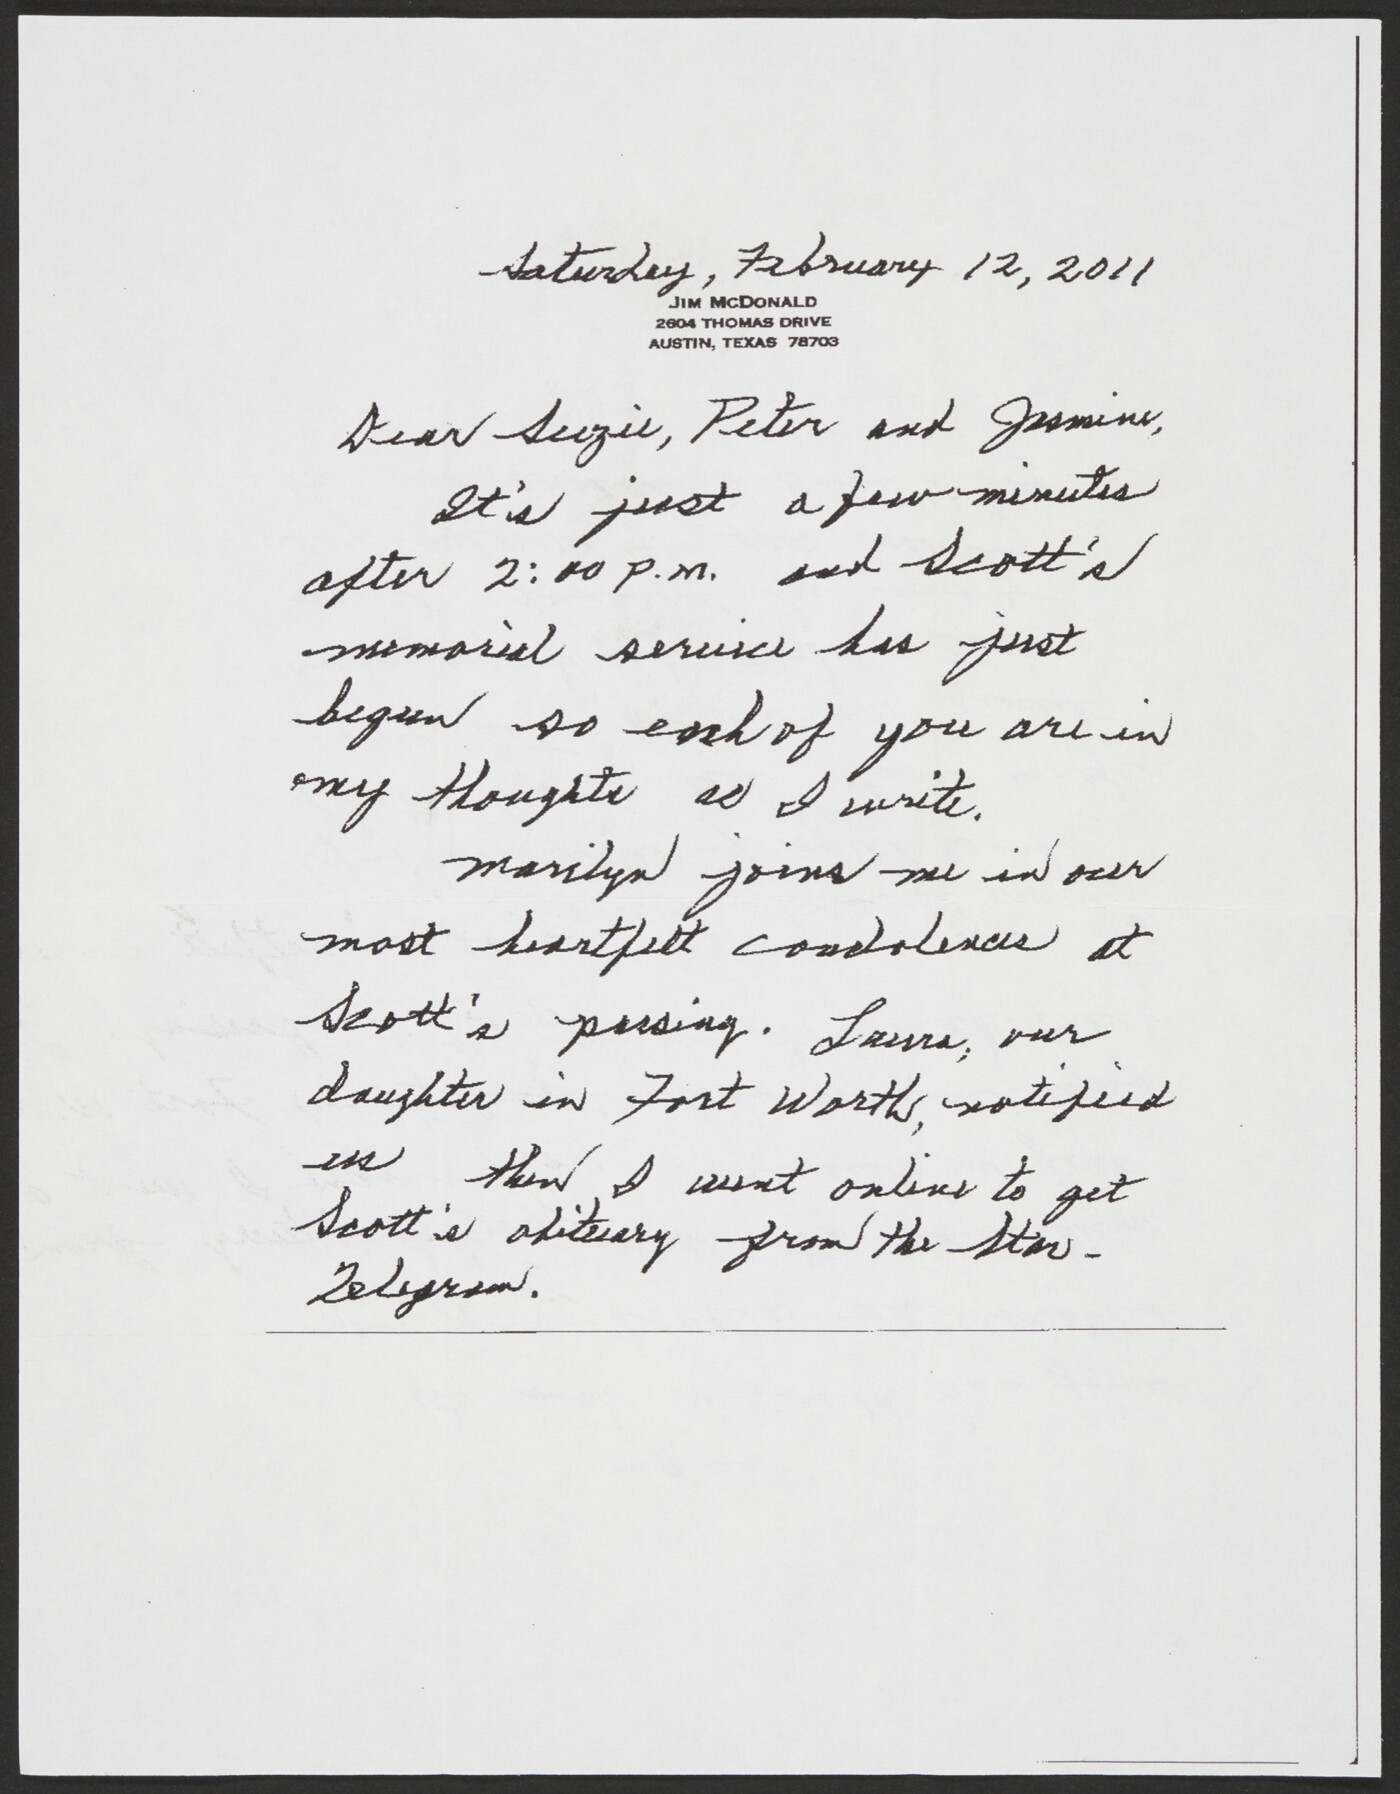 Saturday, February 12, 2011
JIM MCDONALD
2604 THOMAS DRIVE
AUSTIN, TEXAS 78703
Dear Suzie, Peter and Jasmine,
It's just a few minutes
after 2:00 p.m. and Scott's
memorial service has just
begun so each of you are in
my thoughts as I write.
Marilyn joins me in our
most heartfelt condolences at
Scott's passing. Laura, our
daughter in Fort Worth, notified
us then I went online to get
Scott's obituary from the Star-
Telegram.